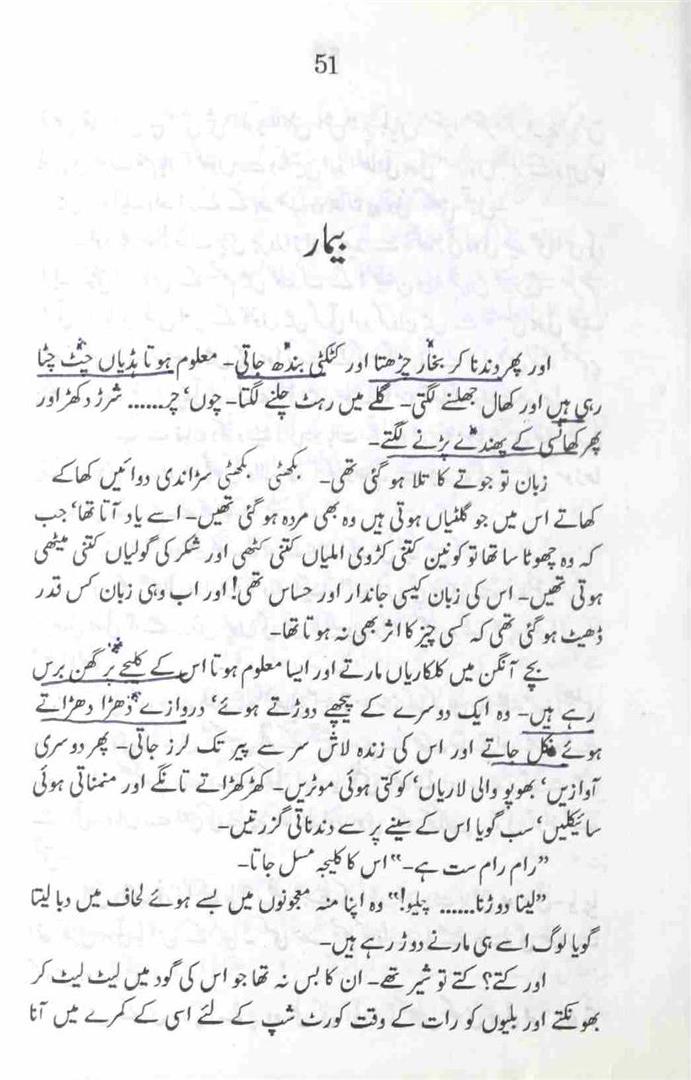 51
بیمار
اور پھر دندنا کر بخار چڑھتا اور کٹکٹی بندھ جاتی۔ معلوم ہوتا ہڈیاں چٹ چٹا
رہی ہیں اور کھال جھلنے لگتی۔ گلے میں رہٹ چلنے لگتا۔ چوں، چر...... شرڑ دکھڑ اور
پھر کھانسی کے پھندے پڑنے لگتے۔
زبان تو جوتے کا تلا ہو گئی تھی۔ بکھٹی بکھٹی سڑاندی دوائیں کھا کے
کھاتے اس میں جو گلٹیاں ہوتی ہیں وہ بھی مردہ ہو گئی تھیں۔ اسے یاد آتا تھا، جب
کہ وہ چھوٹا سا تھا تو کونین کتنی کڑوی املیاں کتنی کٹھی اور شکر کی گولیاں کتنی میٹھی
ہوتی تھیں۔ اس کی زبان کیسی جاندار اور حساس تھی! اور اب وہی زبان کس قدر
ڈھیٹ ہو گئی تھی کہ کسی چیز کا اثر بھی نہ ہوتا تھا۔
بچے آنگن میں کلکاریاں مارتے اور ایسا معلوم ہوتا اس کے کلیجے پر گھن برس
رہے ہیں۔ وہ ایک دوسرے کے پیچھے دوڑتے ہوئے، دروازے دھڑا دھڑاتے
ہوئے نکل جاتے اور اس کی زندہ لاش سر سے پیر تک لرز جاتی۔ پھر دوسری
آوازیں، بھوپو والی لاریاں، کوکتی ہوئی موٹریں۔ کھڑکھڑاتے تانگے اور منمناتی ہوئی
سائیکلیں، سب گویا اس کے سینے پر سے دندناتی گزرتیں۔
”رام رام ست ہے۔“ اس کا کلیجہ مسل جاتا۔
”لینا دوڑنا...... چلیو!“ وہ اپنا منہ معجونوں میں بسے ہوئے لحاف میں دبا لیتا
گویا لوگ اسے ہی مارنے دوڑ رہے ہیں۔
اور کتے؟ کتے تو شیر تھے۔ ان کا بس نہ تھا جو اس کی گود میں لیٹ لیٹ کر
بھونکتے اور بلیوں کو رات کے وقت کورٹ شپ کے لئے اسی کے کمرے میں آنا